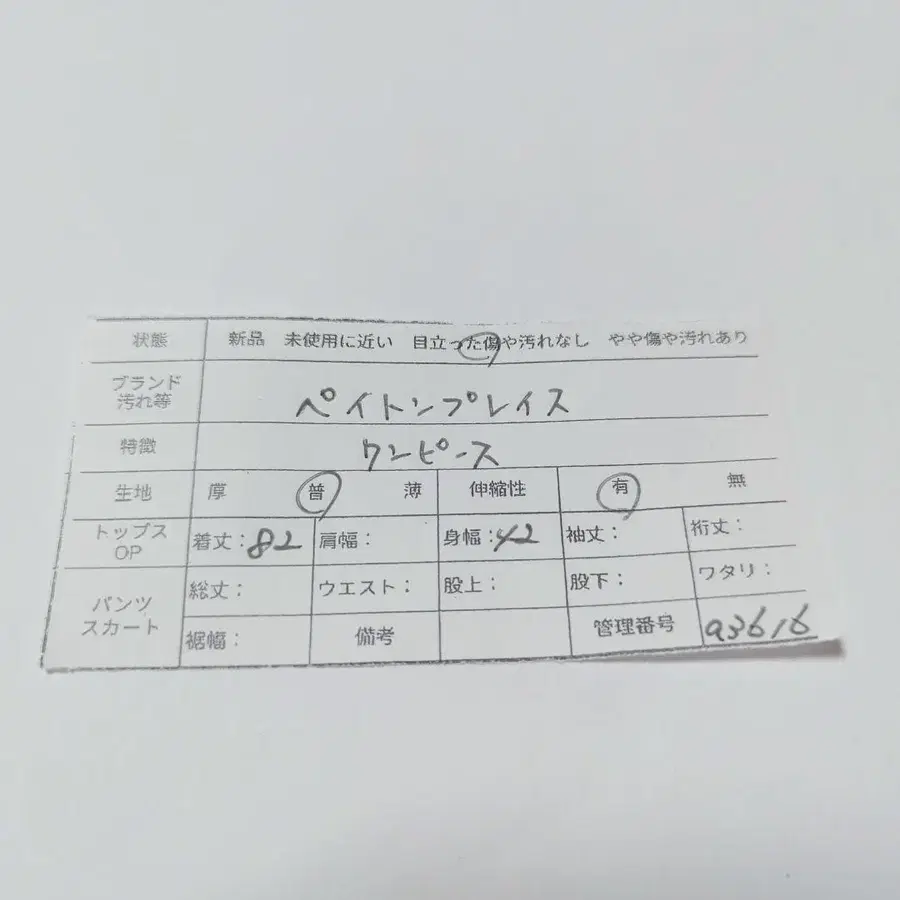 状態 新品 未使用に近い 目立った傷や汚れなし やや傷や汚れあり
ブランド
汚れ等 ペイトンプレイス
特徴 ワンピース
生地 厚 普 薄 伸縮性 有 無
トップス
OP 着丈:82 肩幅: 身幅:42 袖丈: 裄丈:
パンツ
スカート 総丈: ウエスト: 股上: 股下: ワタリ:
裾幅: 備考 管理番号 a3616